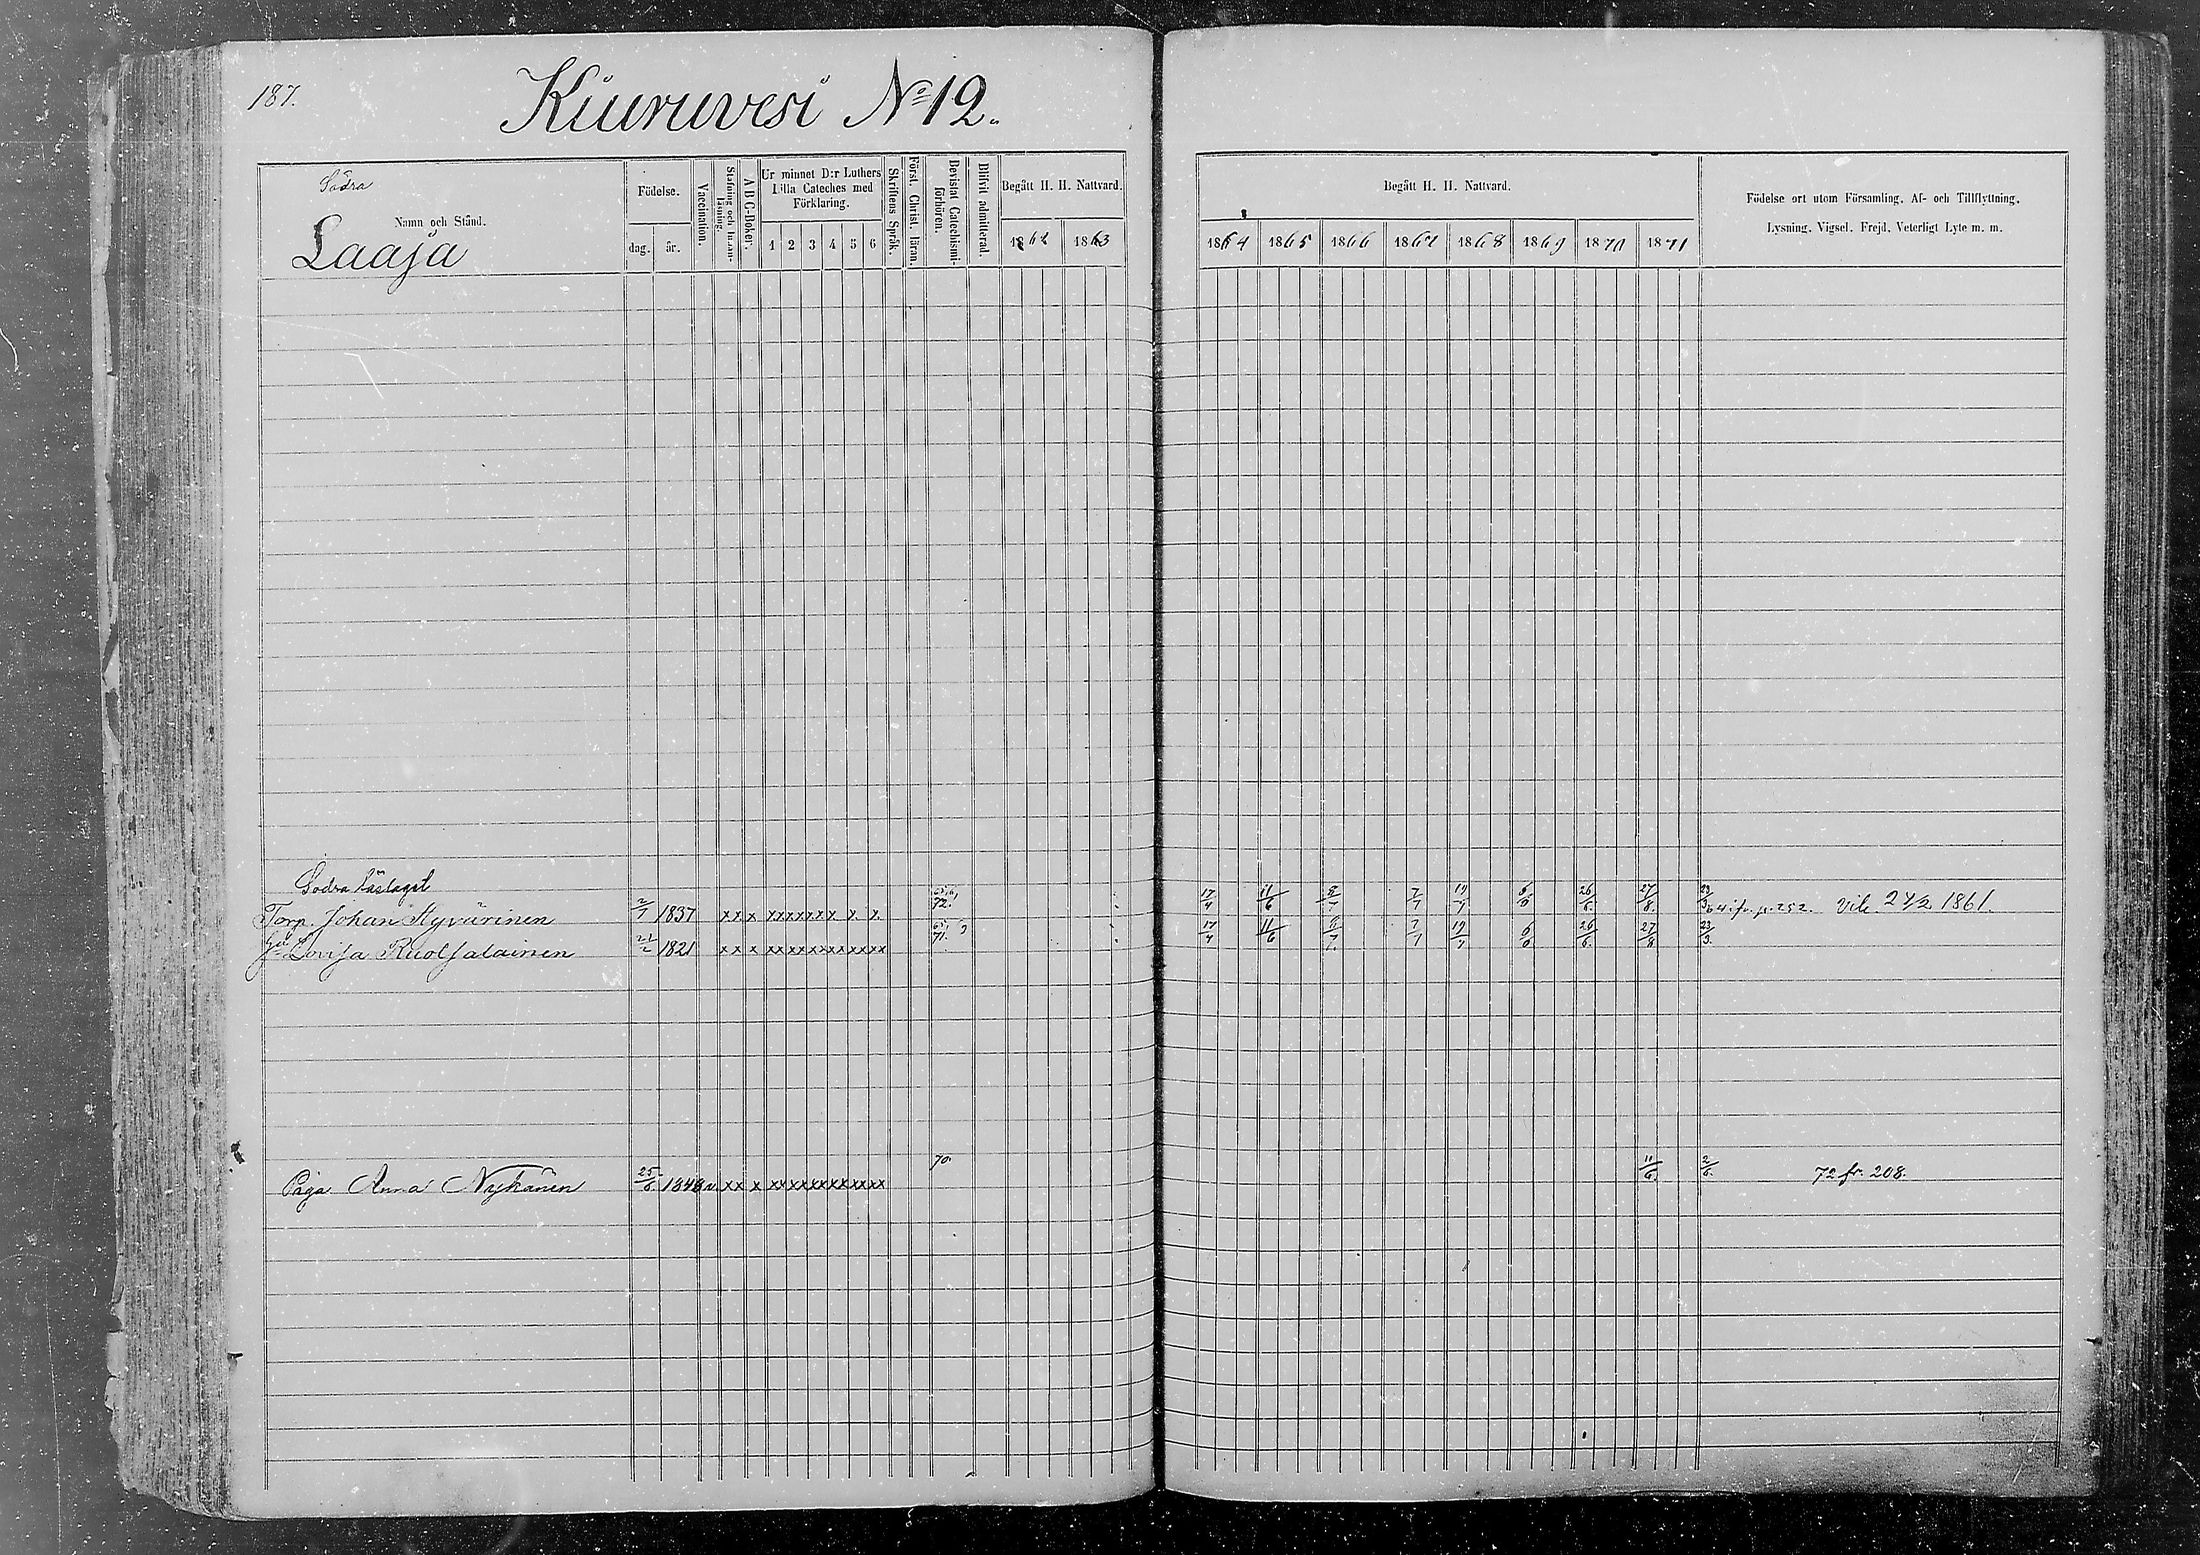 187.
Kiuruvesi No 12.
Södra
Namn och Stånd.
Laaja
Födelse.
dag. år.
Vaccination.
Stafning och Innanläsning.
A B C-Boken.
Ur minnet D:r Luthers Lilla Cateches med Förklaring.
1 2 3 4 5 6
Skriftens Språk.
Först. Christ. läran.
Bevistat Catechismiförhören.
Blifvit admitterad.
Begått H. H. Nattvard.
1862 1863
Begått H. H. Nattvard.
1864 1865 1866 1867 1868 1869 1870 1871
Födelse ort utom Församling. Af- och Tillflyttning.
Lysning. Vigsel. Frejd, Veterligt Lyte m. m.
Södra läslaget
Torp. Johan Hyvärinen 2/7 1837 x x x xxxxxxx x x 72. 17/4 11/6 8/7 7/7 19/7 6/6 26/6. 27/8. 23/3 64 ifr. p. 252. Vik. 27/2 1861.
Lovisa Ruotsalainen 21/2 1821 x x x xxxxxxxxxxxx 71. 17/4 11/6 8/7. 7/7 19/7 6/6 26/6. 27/8 23/3.
Piga Anna Nykänen 25/6 1848 v. xx x xxxxxxxxxxxx 70. 11/6. 2/6. 72 fr. 208.